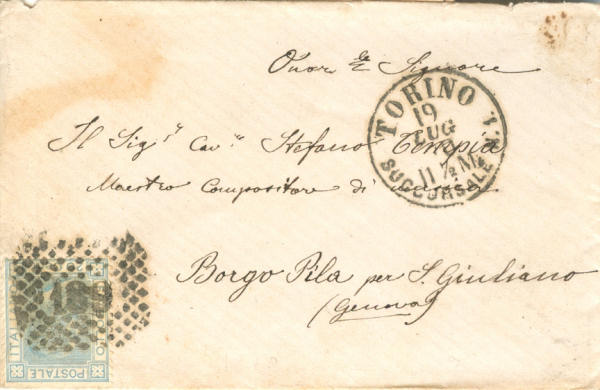 Onor.le Signore
Il Sig.r Cav.e Stefano Tempia
Maestro Compositore di musica
Borgo Pila per S. Giuliano
(Genova)
TORINO
19
LUG
11 ½ M
SUCCURSALE
POSTALE
ITAL